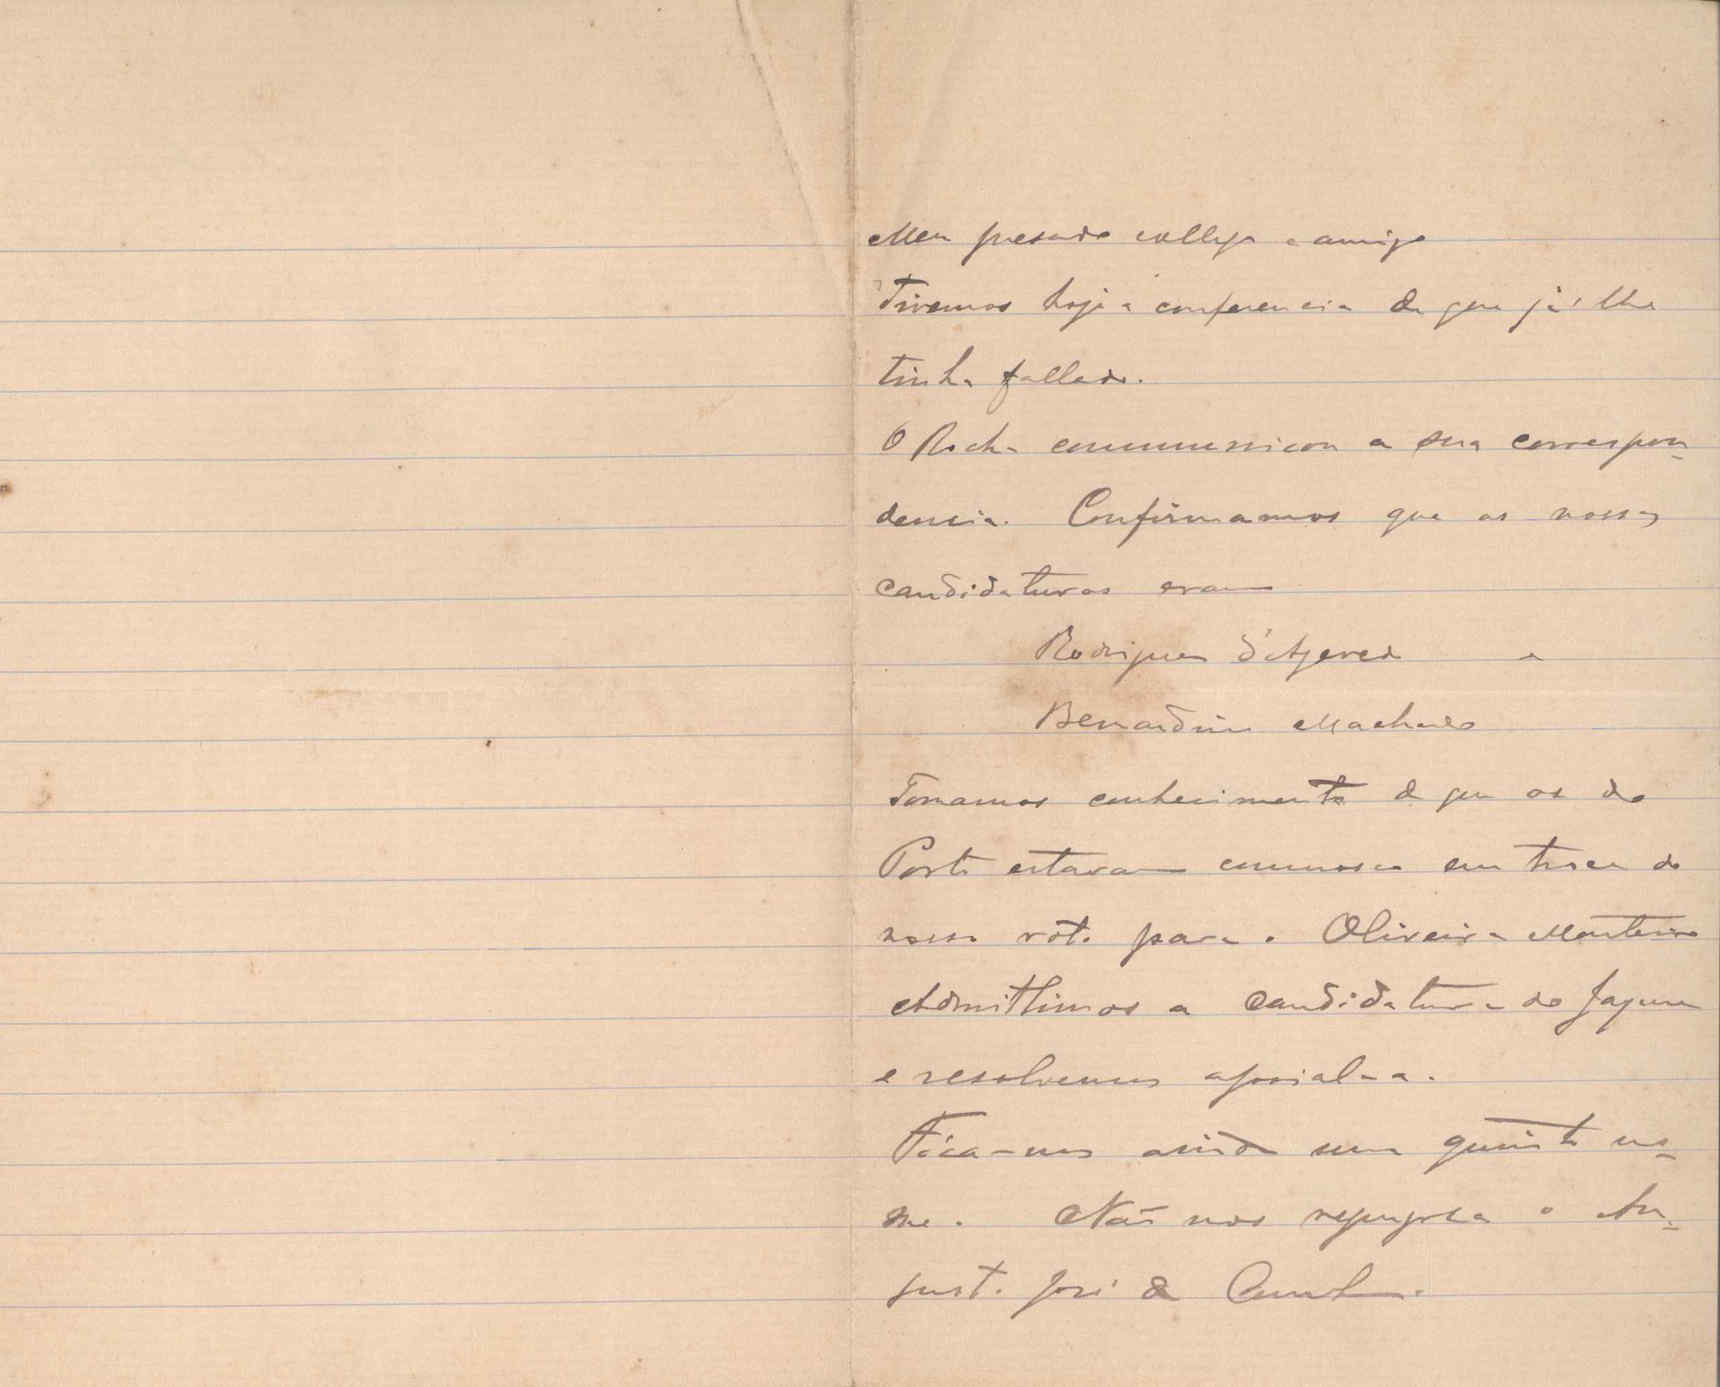 Meu presado collega e amigo
Tivemos hoje a conferencia de que já lhe
tinha fallado.
O Rocha communicou a sua correspon-
dencia. Confirmamos que as nossas
candidaturas eram
Rodrigues d'Azevedo e
Bernardino Machado
Tomamos conhecimento de que os do
Porto estavam comnosco em troca do
nosso voto para o Oliveira Monteiro
Admittimos a candidatura do Jayme
e resolvemos apoial-a.
Fica-nos ainda um quinto no-
me. Não nos repugna o Au-
gusto José da Cunha.